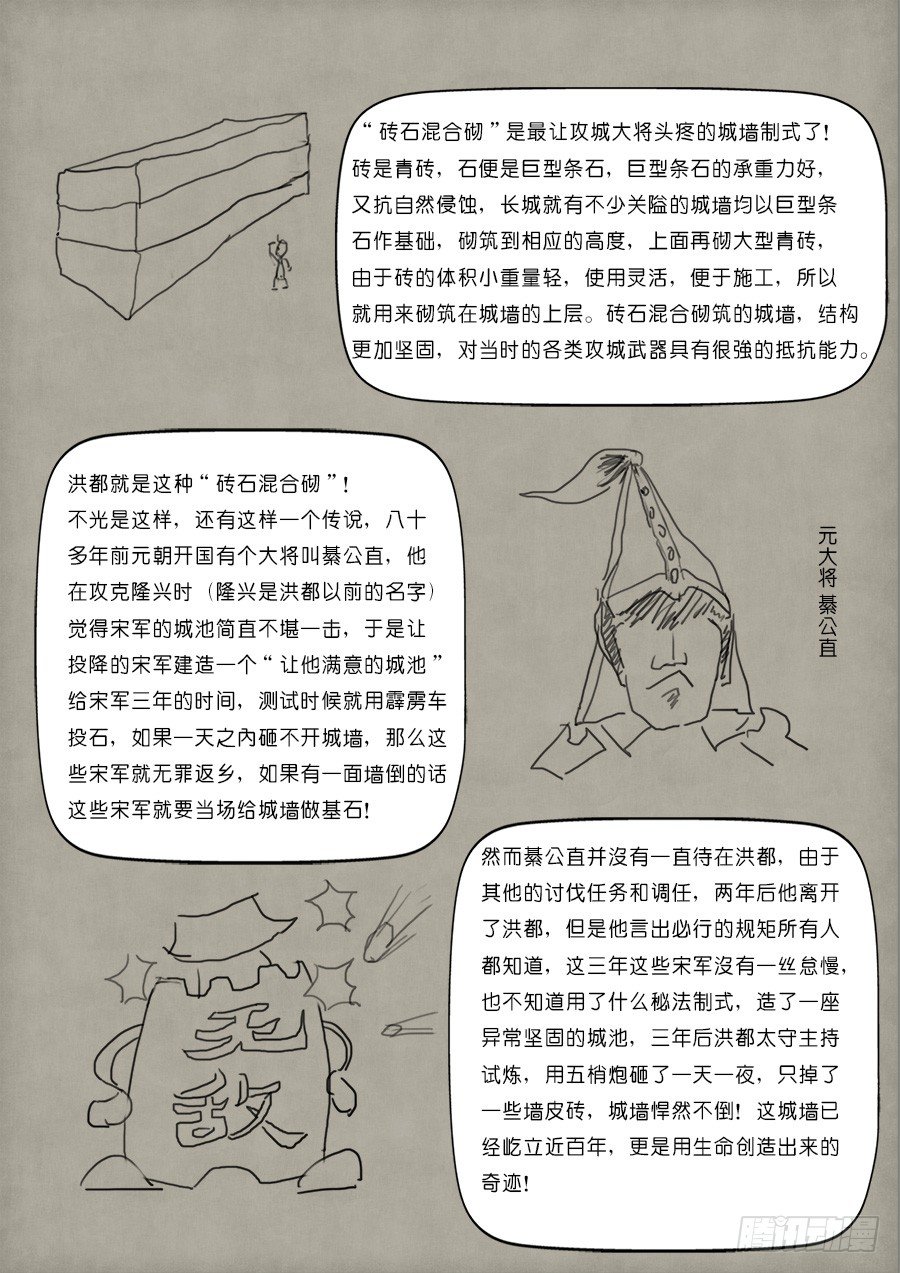 “砖石混合砌”是最让攻城大将头疼的城墙制式了！
砖是青砖，石便是巨型条石，巨型条石的承重力好，
又抗自然侵蚀，长城就有不少关隘的城墙均以巨型条
石作基础，砌筑到相应的高度，上面再砌大型青砖，
由于砖的体积小重量轻，使用灵活，便于施工，所以
就用来砌筑在城墙的上层。砖石混合砌筑的城墙，结构
更加坚固，对当时的各类攻城武器具有很強的抵抗能力。
洪都就是这种“砖石混合砌”！
不光是这样，还有这样一个传说，八十
多年前元朝开国有个大将叫綦公直，他
在攻克隆兴时（隆兴是洪都以前的名字）
觉得宋军的城池简直不堪一击，于是让
投降的宋军建造一个“让他满意的城池”
给宋军三年的时间，测试时候就用霹雳车
投石，如果一天之內砸不开城墙，那么这
些宋军就无罪返乡，如果有一面墙倒的话
这些宋军就要当场给城墙做基石！
元大将 綦公直
然而綦公直并沒有一直待在洪都，由于
其他的讨伐任务和调任，两年后他离开
了洪都，但是他言出必行的规矩所有人
都知道，这三年这些宋军沒有一丝怠慢，
也不知道用了什么秘法制式，造了一座
异常坚固的城池，三年后洪都太守主持
试炼，用五梢炮砸了一天一夜，只掉了
一些墙皮砖，城墙悍然不倒！这城墙已
经屹立近百年，更是用生命创造出来的
奇迹！
无
敌
腾讯动漫